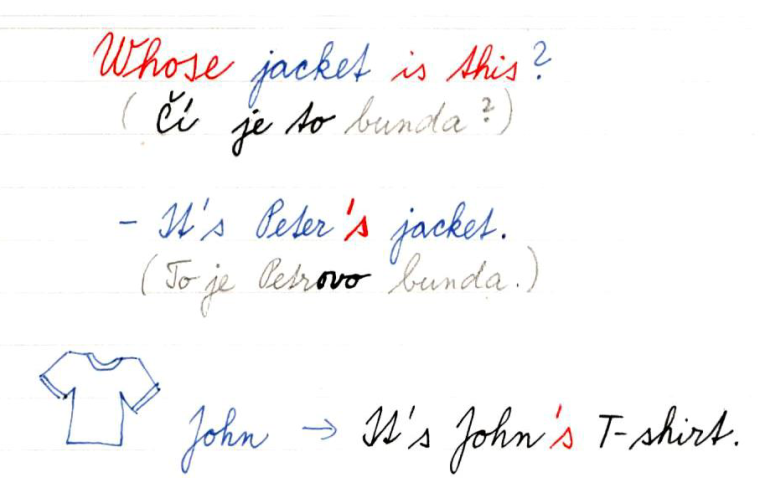 Whose jacket is this?
(Čí je to bunda?)
- It's Peter's jacket.
(To je Petrovo bunda.)
John → It's John's T-shirt.